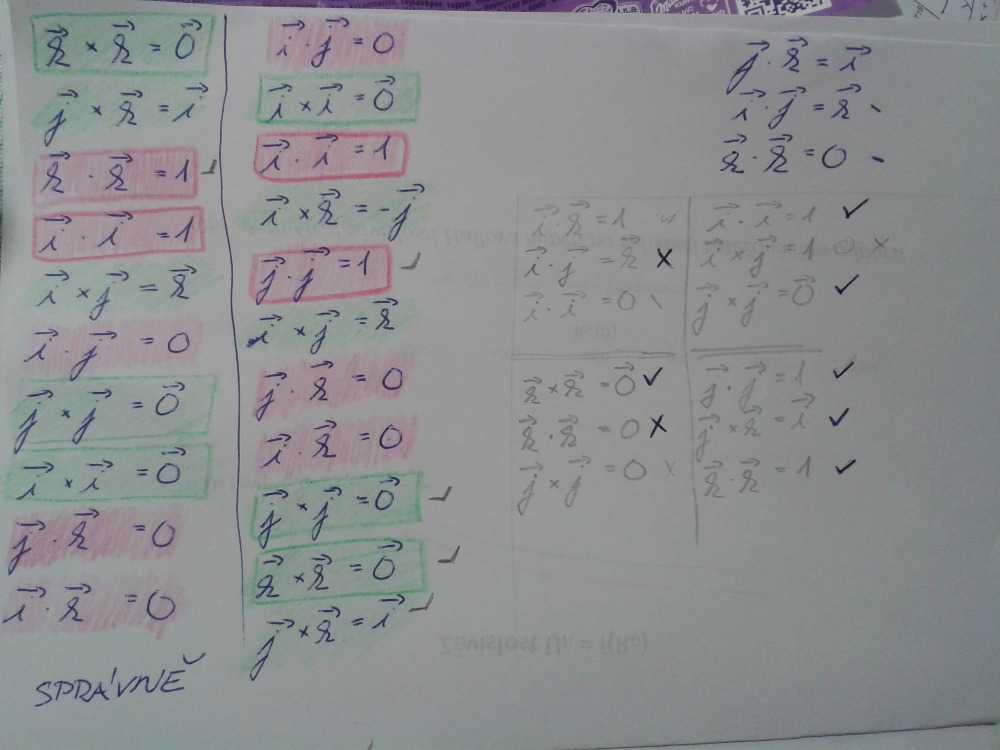 k⃗ × k⃗ = 0⃗
j⃗ × k⃗ = i⃗
k⃗ · k⃗ = 1
i⃗ · i⃗ = 1
i⃗ × j⃗ = k⃗
i⃗ · j⃗ = 0
j⃗ × j⃗ = 0⃗
i⃗ × i⃗ = 0⃗
j⃗ · k⃗ = 0
i⃗ · k⃗ = 0
SPRÁVNĚ
i⃗ · j⃗ = 0
i⃗ × i⃗ = 0⃗
i⃗ · i⃗ = 1
i⃗ × k⃗ = -j⃗
j⃗ · j⃗ = 1
i⃗ × j⃗ = k⃗
j⃗ · k⃗ = 0
i⃗ · k⃗ = 0
j⃗ × j⃗ = 0⃗
k⃗ × k⃗ = 0⃗
j⃗ × k⃗ = i⃗
j⃗ · k⃗ = i⃗
i⃗ · j⃗ = k⃗
k⃗ · k⃗ = 0
i⃗ · k⃗ = 1
i⃗ · j⃗ = k⃗ ✗
i⃗ · i⃗ = 0
i⃗ · i⃗ = 1 ✓
i⃗ × j⃗ = 1 0 ×
j⃗ × j⃗ = 0⃗ ✓
k⃗ × k⃗ = 0⃗ ✓
k⃗ · k⃗ = 0 ✗
j⃗ × j⃗ = 0 ×
j⃗ · j⃗ = 1 ✓
j⃗ × k⃗ = i⃗ ✓
k⃗ · k⃗ = 1 ✓